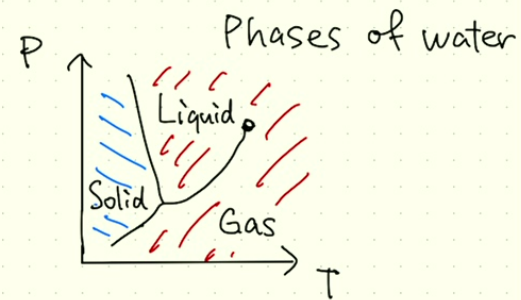 Phases of water
P
Liquid
Solid
Gas
T